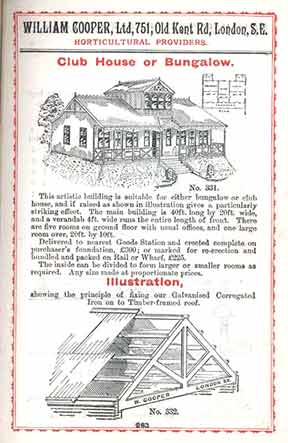 WILLIAM COOPER, Ltd, 751, Old Kent Rd, London, S.E.
HORTICULTURAL PROVIDERS.
Club House or Bungalow.
No. 331.
This artistic building is suitable for either bungalow or club
house, and if raised as shown in illustration gives a particularly
striking effect. The main building is 40ft. long by 20ft. wide,
and a verandah 4ft. wide runs the entire length of front. There
are five rooms on ground floor with usual offices, and one large
room over, 20ft. by 10ft.
Delivered to nearest Goods Station and erected complete on
purchaser's foundation, £300; or marked for re-erection and
bundled and packed on Rail or Wharf, £225.
The inside can be divided to form larger or smaller rooms as
required. Any size made at proportionate prices.
Illustration,
showing the principle of fixing our Galvanised Corrugated
Iron on to Timber-framed roof.
W. COOPER LONDON S.E.
No. 332.
263